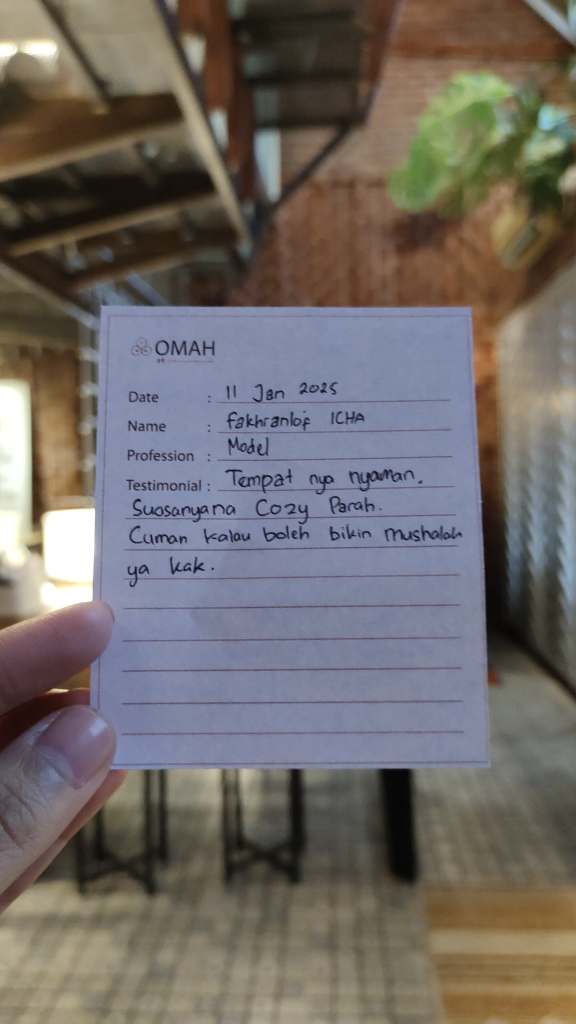 OMAH
Date : 11 Jan 2025
Name : ICHA
Profession : Model
Testimonial : Tempat nya nyaman.
Suasanyana Cozy Parah.
Cuman kalau boleh bikin mushalah
ya kak.